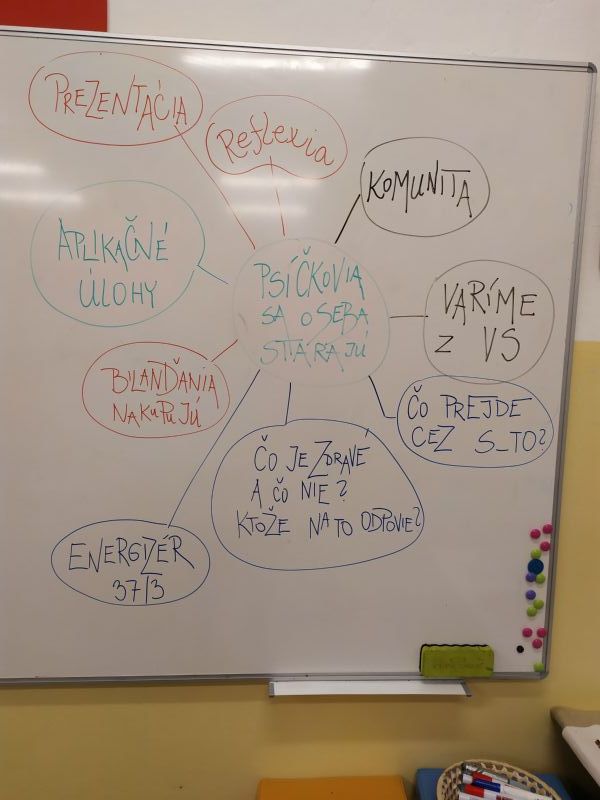 PREZENTÁCIA
Reflexia
KOMUNITA
APLIKAČNÉ
ÚLOHY
PSÍČKOVIA
SA O SEBA
STARAJÚ
VARÍME
Z VŠ
BILANĎANIA
NAKUPUJÚ
ČO PREJDE
CEZ S_TO?
ČO JE ZDRAVÉ
A ČO NIE?
KTOŽE NA TO ODPOVIE?
ENERGIZÉR
37/3